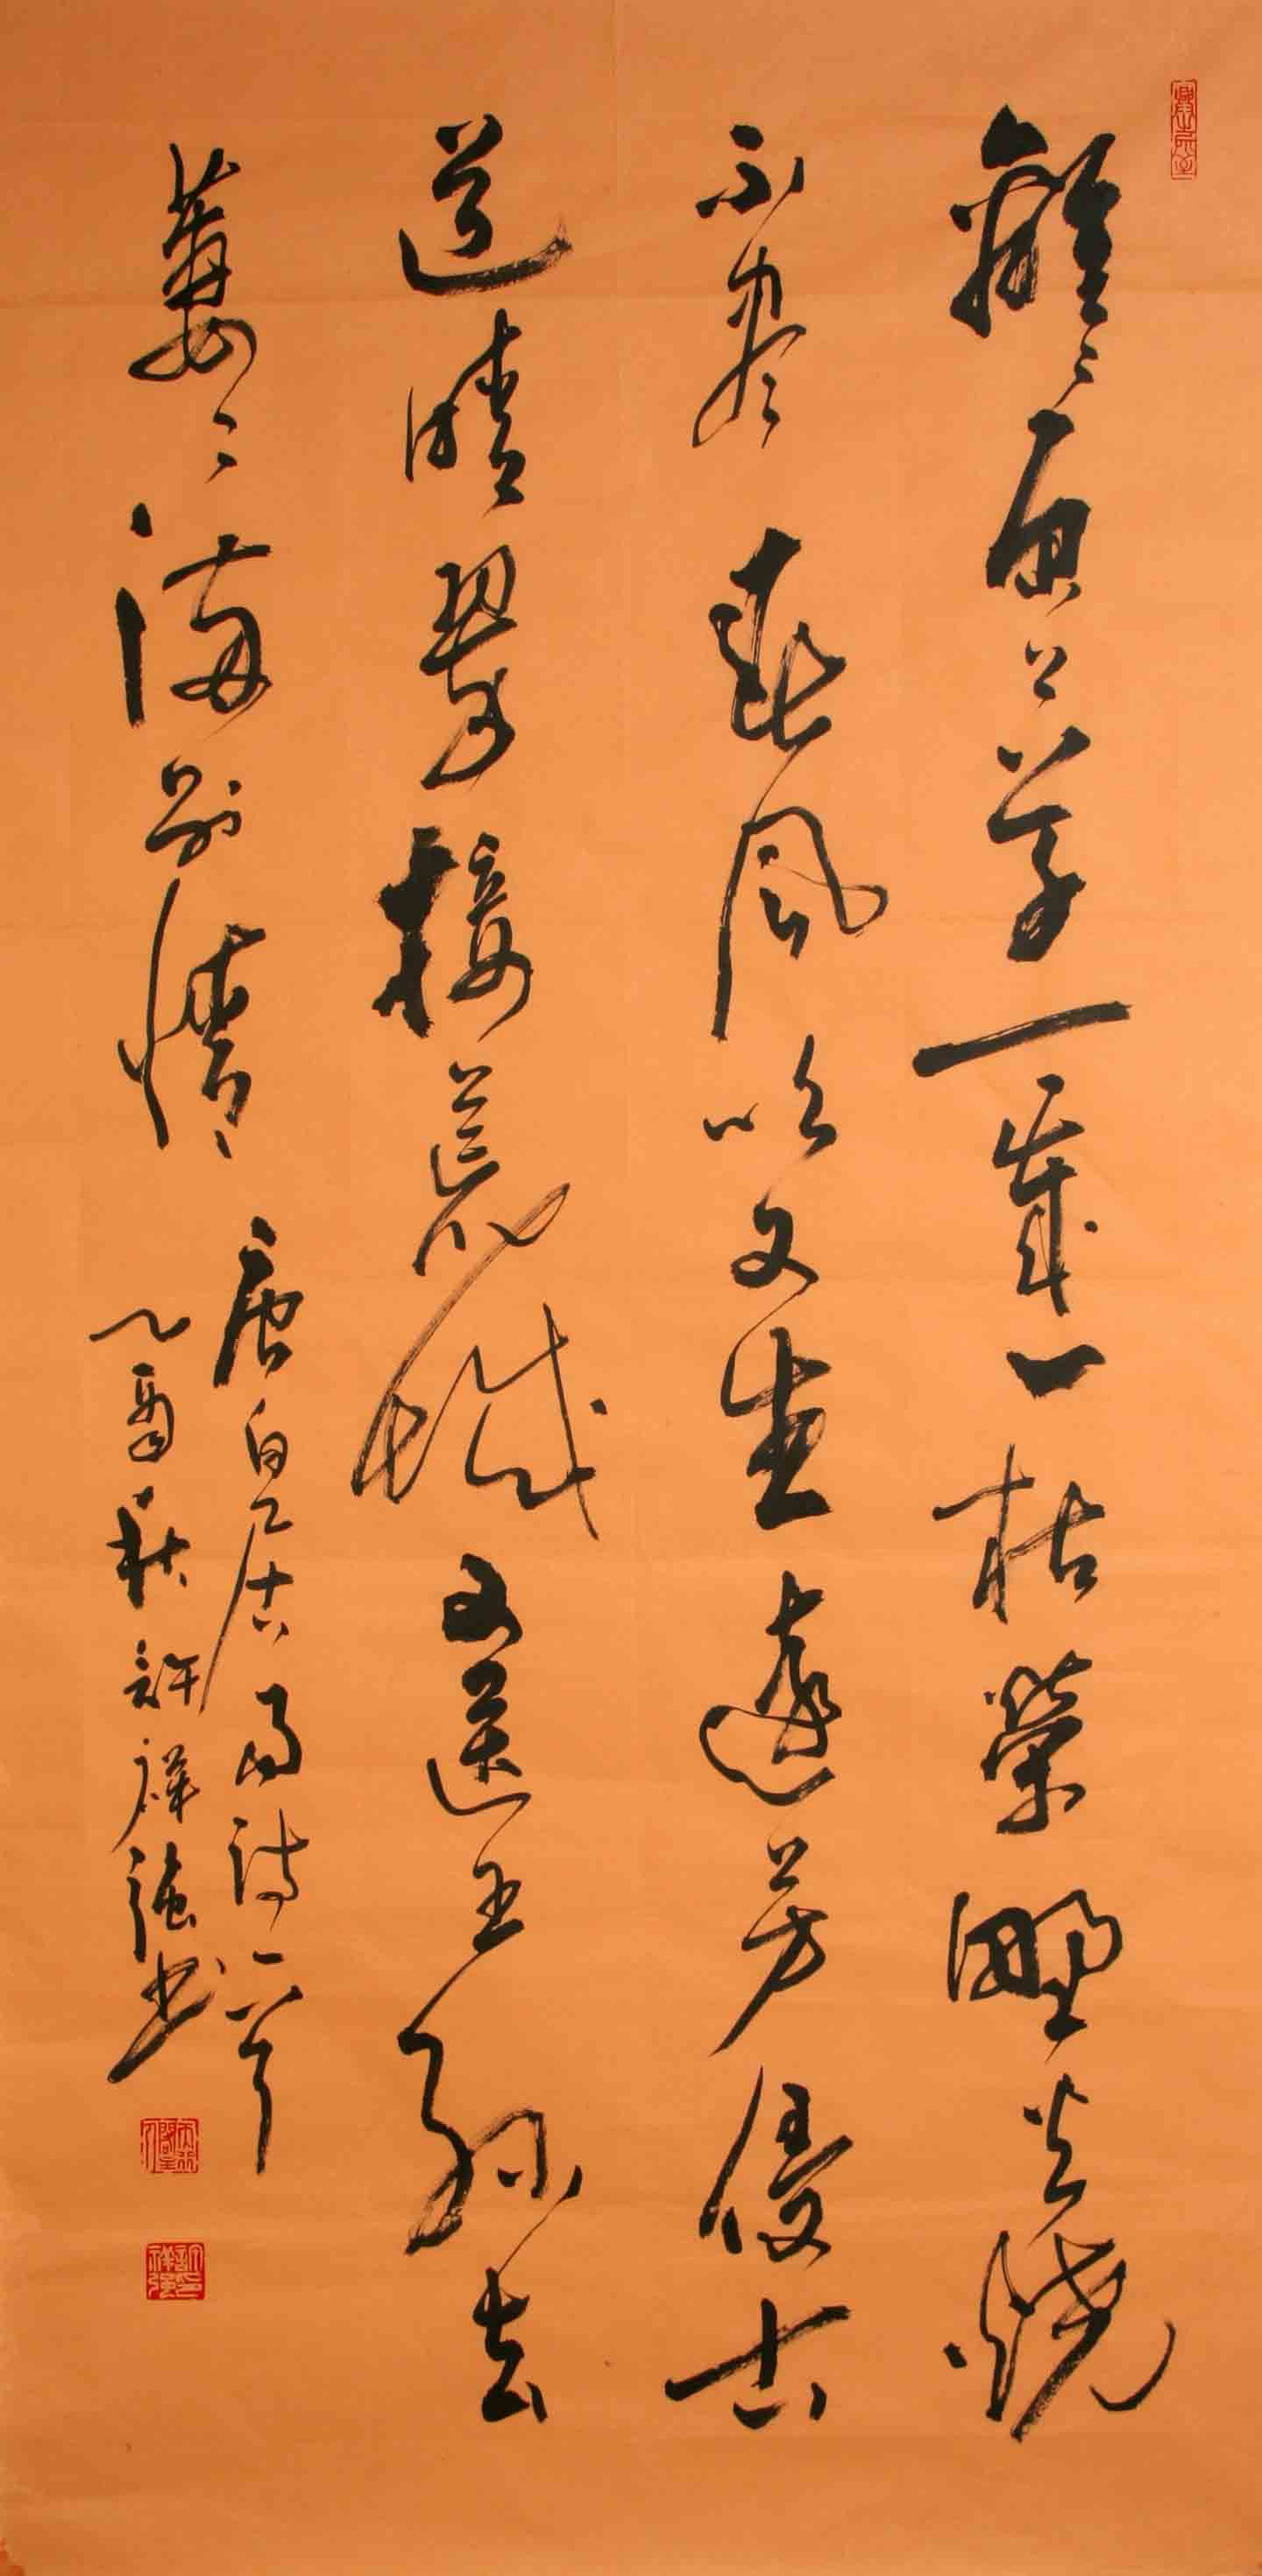 離々原上草一歲一枯榮野火燒
不盡春風吹又生遠芳侵古
道晴翠接荒城又送王孫去
萋々滿別情
唐白居易詩一首
乙酉秋許祥強書